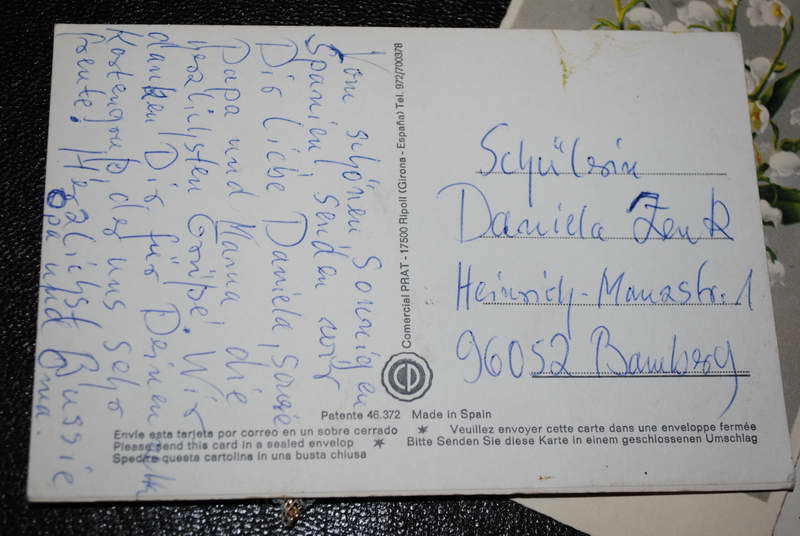 Vom schönen sonnigen
Spanien senden wir
Dir liebe Daniela, sowie
Papa und Mama die
herzlichsten Grüße! Wir
danken Dir für Deinen
Kartengruß der uns sehr
freute! Herzlichst Bussie
Opa und Oma.
Comercial PRAT - 17500 Ripoll (Girona - España) Tel. 972/700378
Schülerin
Daniela Zenk
Heinrich-Mannstr. 1
96052 Bamberg
Patente 46.372 Made in Spain
Envie esta tarjeta por correo en un sobre cerrado ✶ Veuillez envoyer cette carte dans une enveloppe fermée
Please send this card in a sealed envelop ✶ Bitte Senden Sie diese Karte in einem geschlossenen Umschlag
Spedite questa cartolina in una busta chiusa